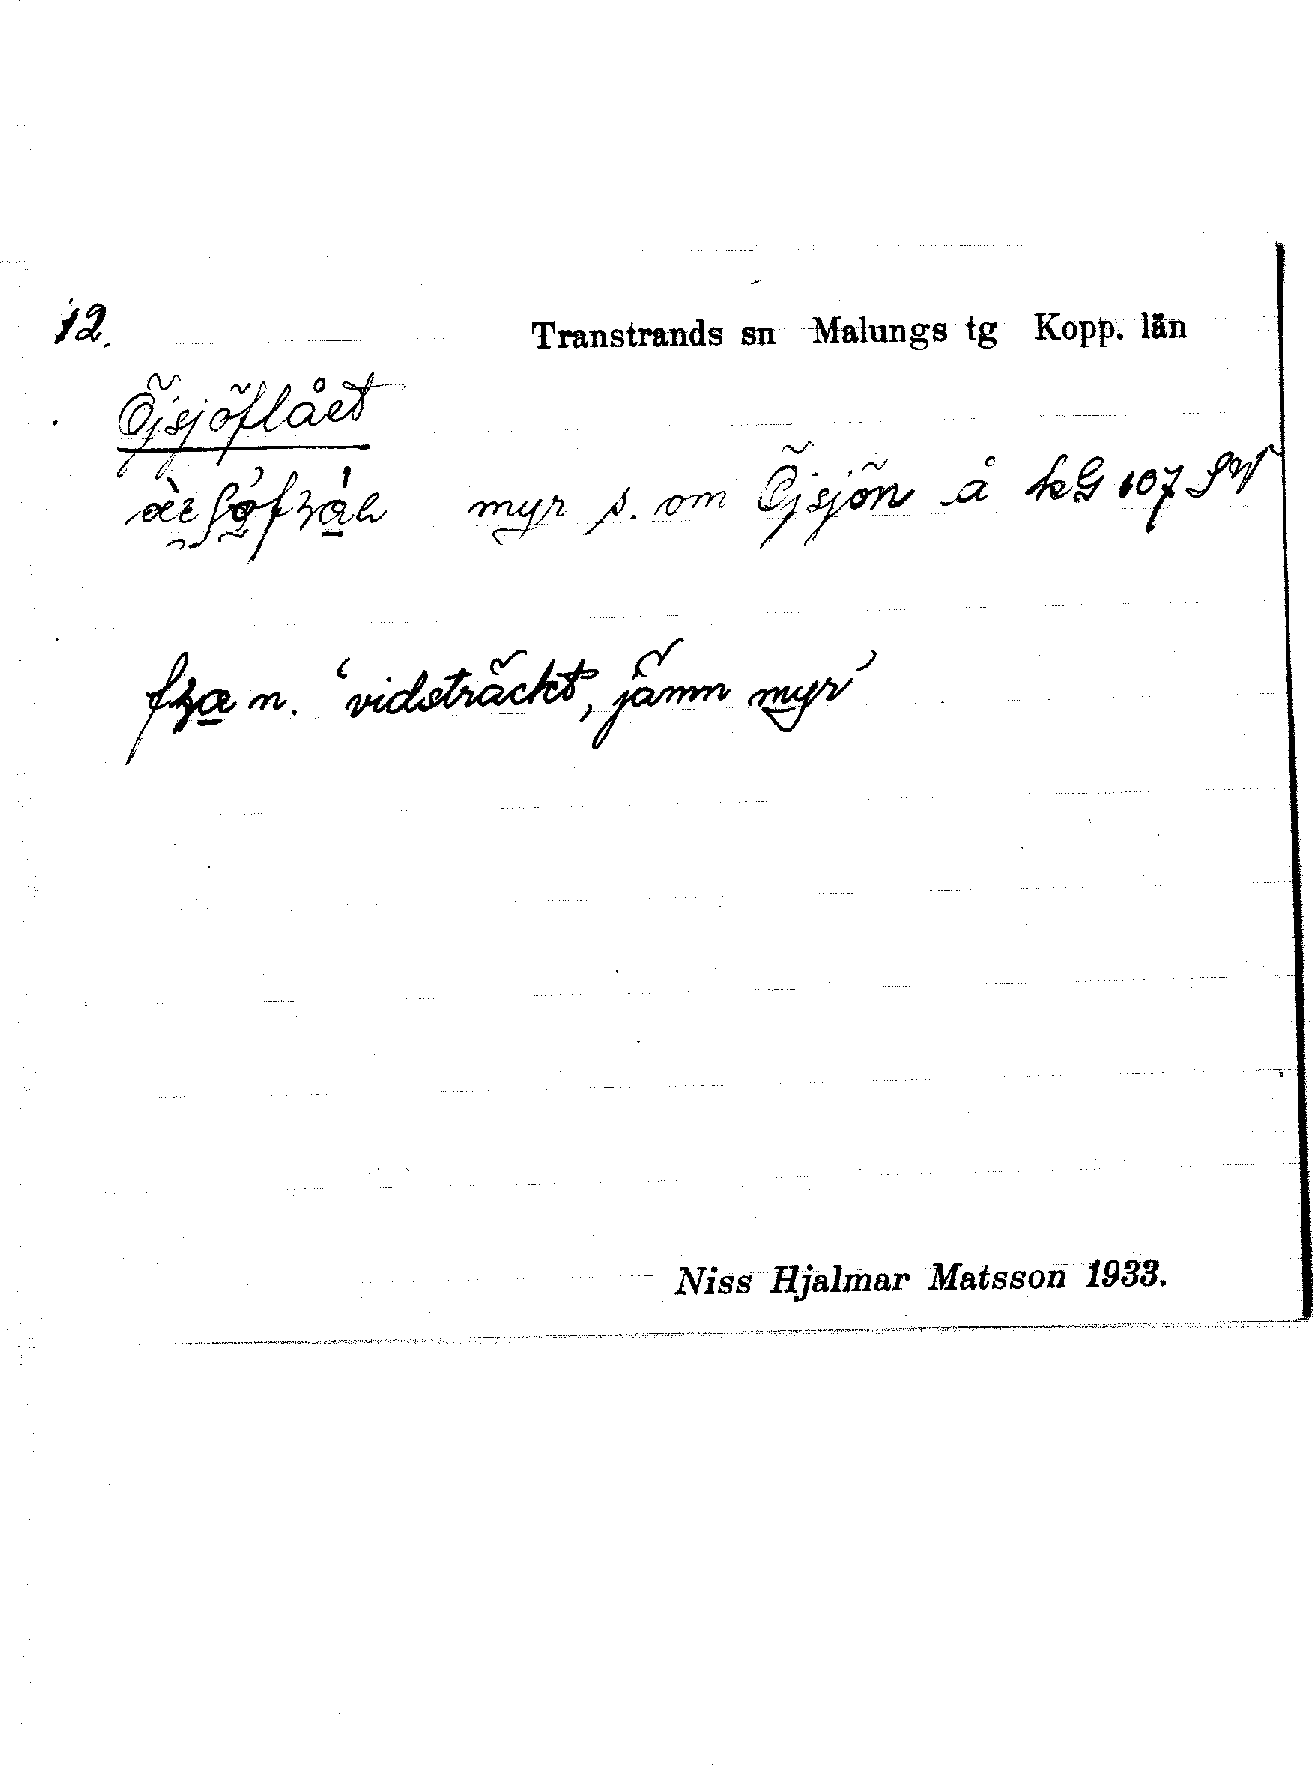 12.
Transtrands sn Malungs tg Kopp. län
Öjsjöflået
myr s. om Öjsjön å kG 107 SV
n. 'vidsträckt, jämn myr'
Niss Hjalmar Matsson 1933.